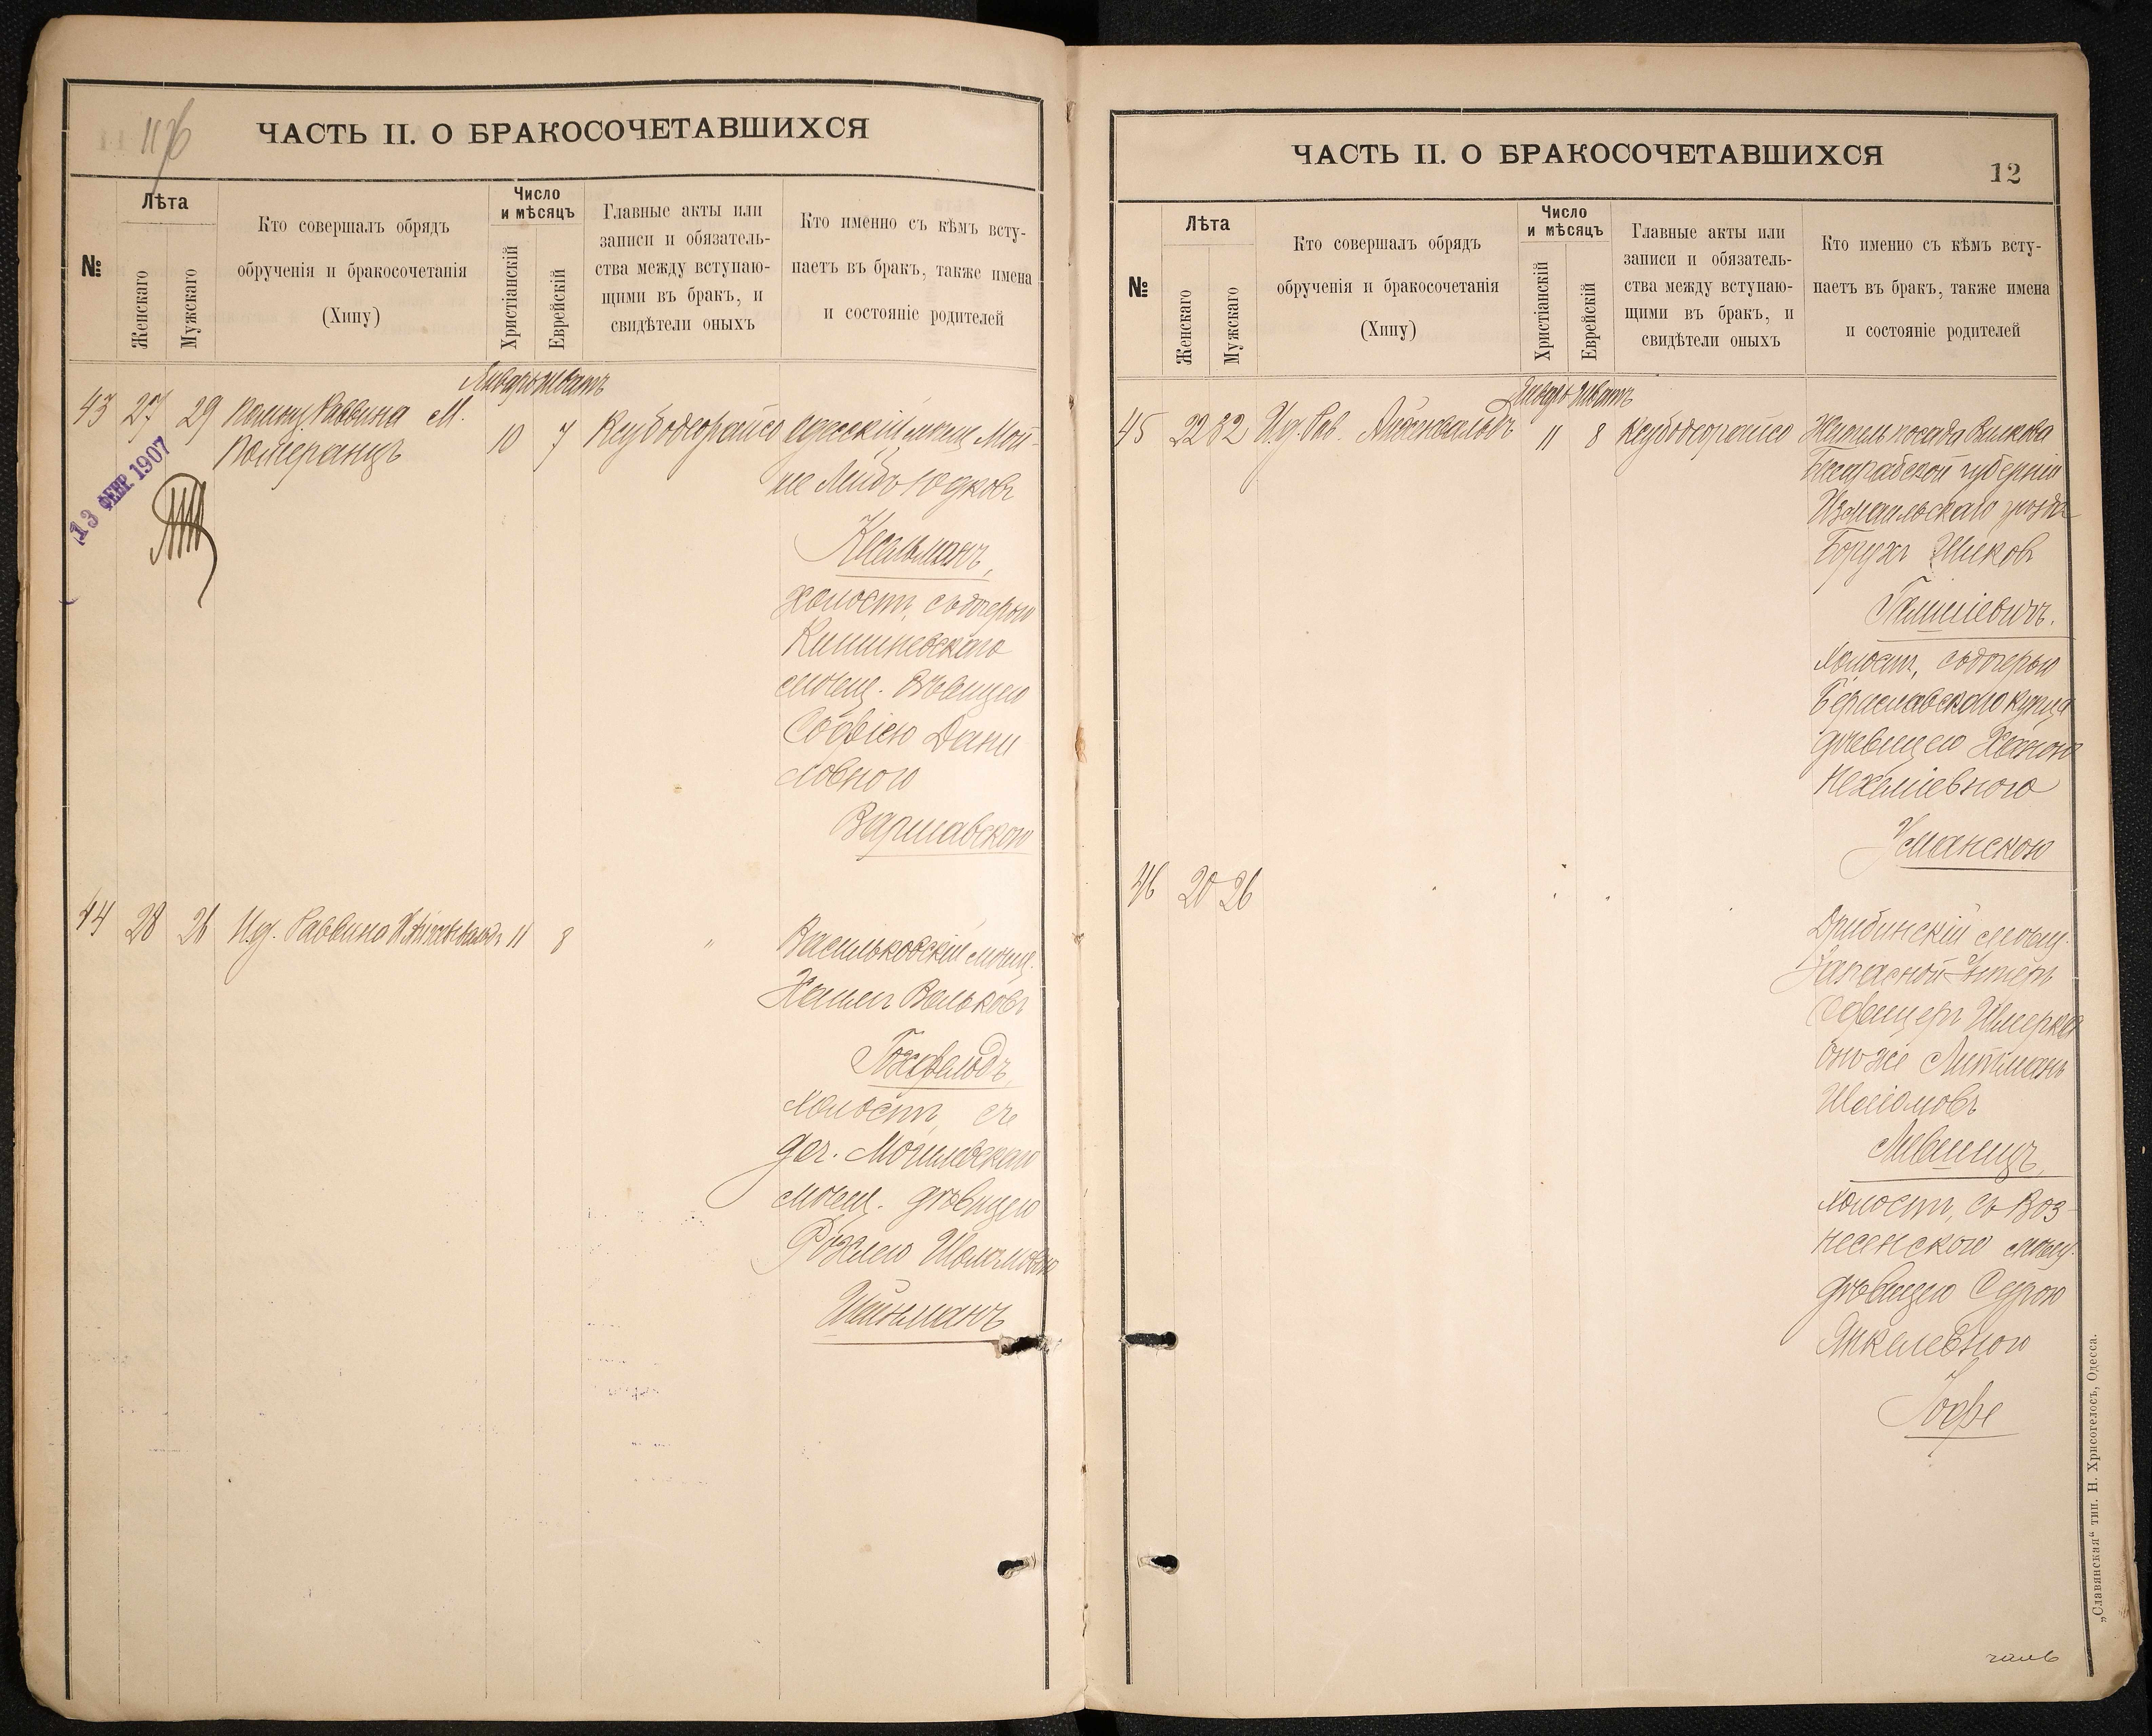 116
ЧАСТЬ II. О БРАКОСОЧЕТАВШИХСЯ
№
Лѣта
Женскаго
Мужскаго
Кто совершалъ обрядъ
обрученія и бракосочетанія
(Хипу)
Число
и мѣсяцъ
Христіанскій
Еврейскій
Главные акты или
записи и обязатель-
ства между вступаю-
щими въ бракъ, и
свидѣтели оныхъ
Кто именно съ кѣмъ всту-
паетъ въ бракъ, также имена
и состояніе родителей
Январь Шватъ
43 27 29 Помощ. Раввина М. 10 7 Ксубо дорайсо Одесскій мѣщ. Мой-
Померанцъ
ше Лейбъ Юдковъ
Кельманъ,
холостъ, съ дочерью
Кишиневскаго
мѣщ. дѣвицею
Софіею Дани
ловною
Варшавскою
13 ФЕВР 1907
44 28 26 И.д. Раввина 11 8 " Васильковскій мѣщ.
Вольковъ
Гохфельдъ,
холостъ, съ
доч. Могилевскаго
мѣщ. дѣвицею
Рейзлею
Шейнманъ
ЧАСТЬ II. О БРАКОСОЧЕТАВШИХСЯ
12
№
Лѣта
Женскаго
Мужскаго
Кто совершалъ обрядъ
обрученія и бракосочетанія
(Хипу)
Число
и мѣсяцъ
Христіанскій
Еврейскій
Главные акты или
записи и обязатель-
ства между вступаю-
щими въ бракъ, и
свидѣтели оныхъ
Кто именно съ кѣмъ всту-
паетъ въ бракъ, также имена
и состояніе родителей
Январь Шватъ
45 22 32 И.д. Рав. Айзенвальдъ 11 8 Ксубо дорайсо Житель посада Вилкова
Бессарабской губерніи
Измаильскаго уѣзда
Борухъ Ициковъ
холостъ, съ дочерью
Бериславскаго купца
дѣвицею Ханою
Нехеміевною
Уманскою
46 20 26
Дрибинскій мѣщ.
Запасной Унтеръ
Офицеръ Шмерка
онъ же Литманъ
Шоломовъ
Лившицъ,
холостъ, съ Воз-
несенскою мѣщ.
дѣвицею Сурою
Янкелевною
Іоффе
„Славянская“ тип. Н. Хрисогелосъ, Одесса.